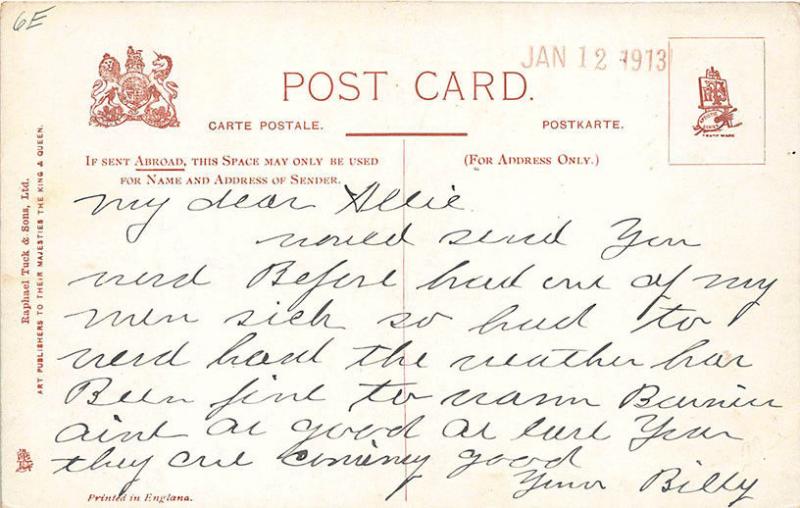 6E
JAN 12 1913
POST CARD.
CARTE POSTALE.
POSTKARTE.
TRADE MARK
IF SENT ABROAD, THIS SPACE MAY ONLY BE USED
FOR NAME AND ADDRESS OF SENDER.
(FOR ADDRESS ONLY.)
My dear Allie
would send You
word Before had one of my
men sick so had to
work hard the weather has
Been fine to warm Business
aint as good as last Year
they are coming good
Yours Billy
Raphael Tuck & Sons, Ltd.
ART PUBLISHERS TO THEIR MAJESTIES THE KING & QUEEN.
Printed in England.